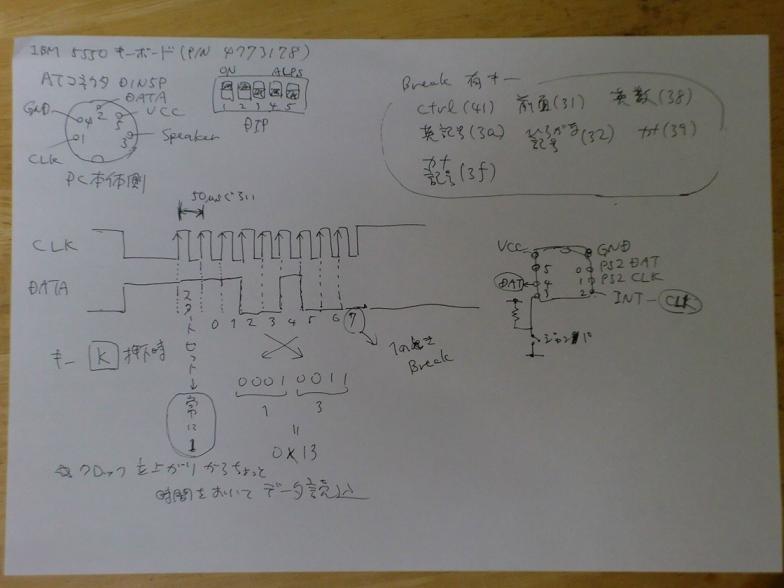 IBM 5550 キーボード (P/N 4773178)
ATコネクタ DIN5P
DATA
GND
VCC
4 2 5
1 3
Speaker
CLK
PC本体側
ON ALPS
1 2 3 4 5
DIP
Break 有キー
Ctrl (41) 前面 (31) 英数 (38)
英記号 (3a) ひらがな記号 (32) カナ (39)
カナ記号 (3f)
50usぐらい
CLK
DATA
0 1 2 3 4 5 6 7
スタートビット→
常に1
キー K 押下時
0001 0011
1 3
=
0x13
1のとき
Break
クロック立上がりからちょっと
時間をおいてデータ読込
VCC GND
5 0 PS2 DAT
DAT 4 1 PS2 CLK
3 2 INT CLK
ジャンパ